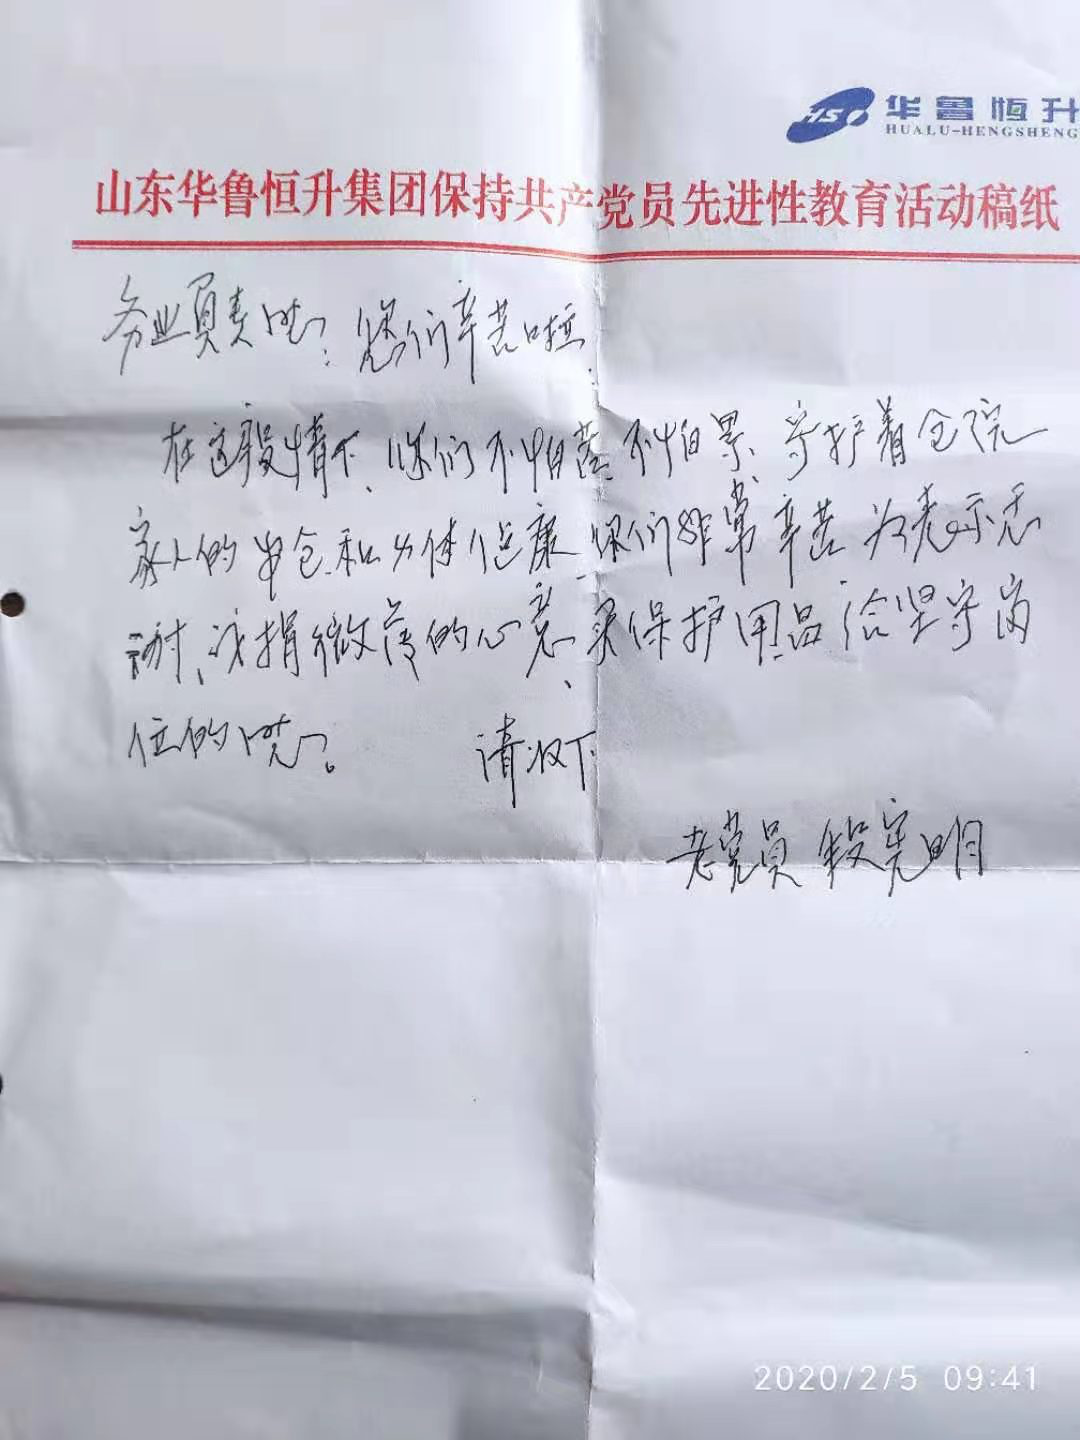 华鲁恒升
HUALU-HENGSHENG
山东华鲁恒升集团保持共产党员先进性教育活动稿纸
务业负责同志: 您们辛苦啦
在这疫情下、你们不怕苦不怕累、守护着全院
家人的安全和身体健康、你们非常辛苦为表示感
谢、我捐微薄的心意、买保护用品给坚守岗
位的同志。 请收下
老党员 段宪明
2020/2/5 09:41